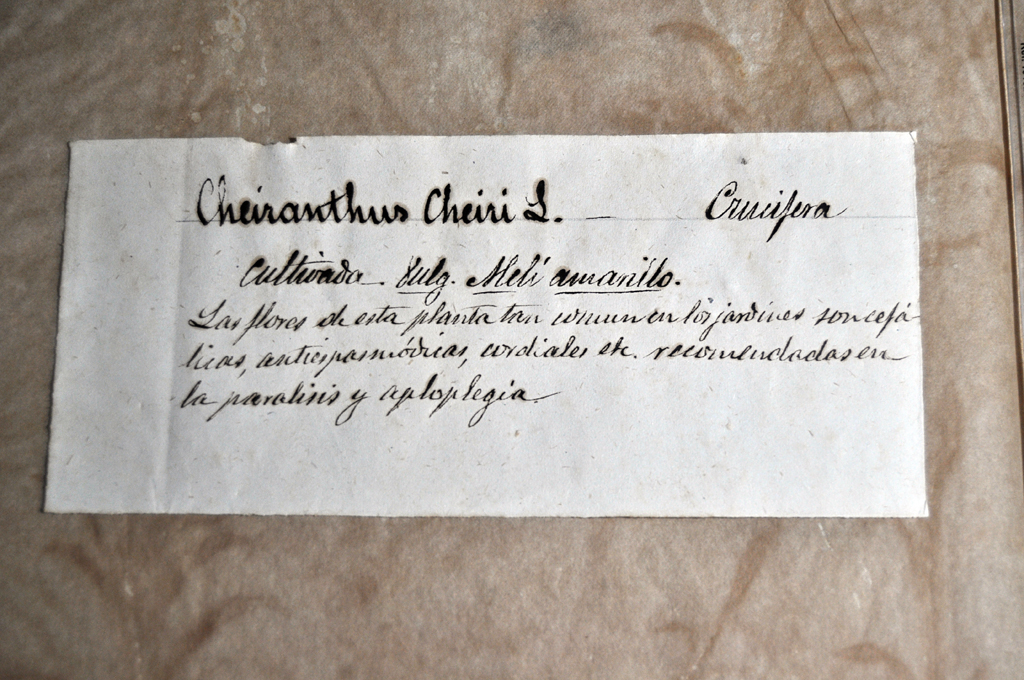 Cheiranthus Cheiri L. — Crucifera
Cultivada. Vulg. Melí amarillo.
Las flores de esta planta tan comun en los jardines son cefá
licas, antiespasmódicas, cordiales etc. recomendadas en
la paralisis y aploplegia